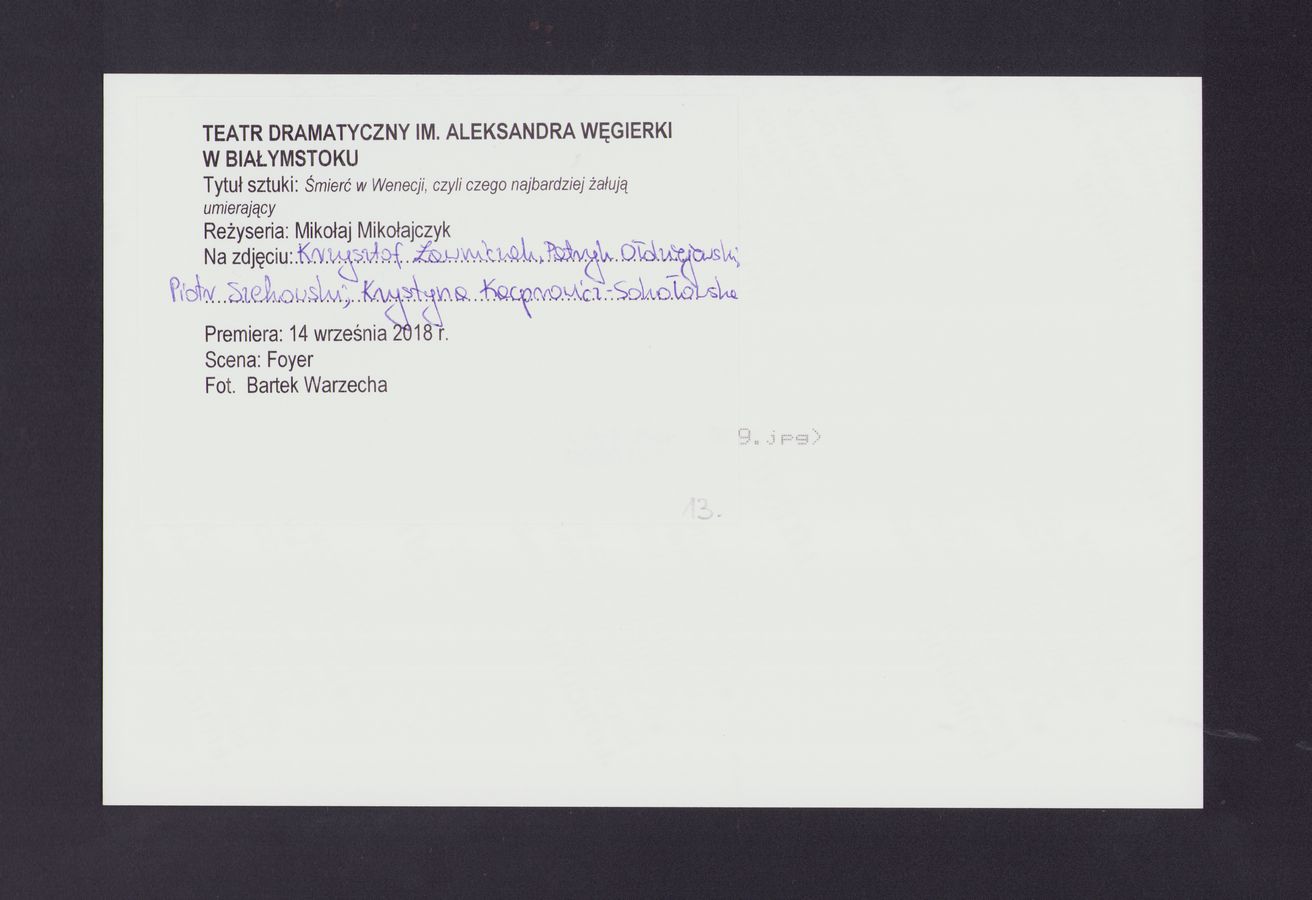 TEATR DRAMATYCZNY IM. ALEKSANDRA WĘGIERKI
W BIAŁYMSTOKU
Tytuł sztuki: Śmierć w Wenecji, czyli czego najbardziej żałują
umierający
Reżyseria: Mikołaj Mikołajczyk
Na zdjęciu: Krzysztof Ławniczak, Patryk Ołdziejewski,
Piotr Szekowski, Krystyna Kacprowicz-Sokołowska
Premiera: 14 września 2018 r.
Scena: Foyer
Fot. Bartek Warzecha
9.jpg>
13.